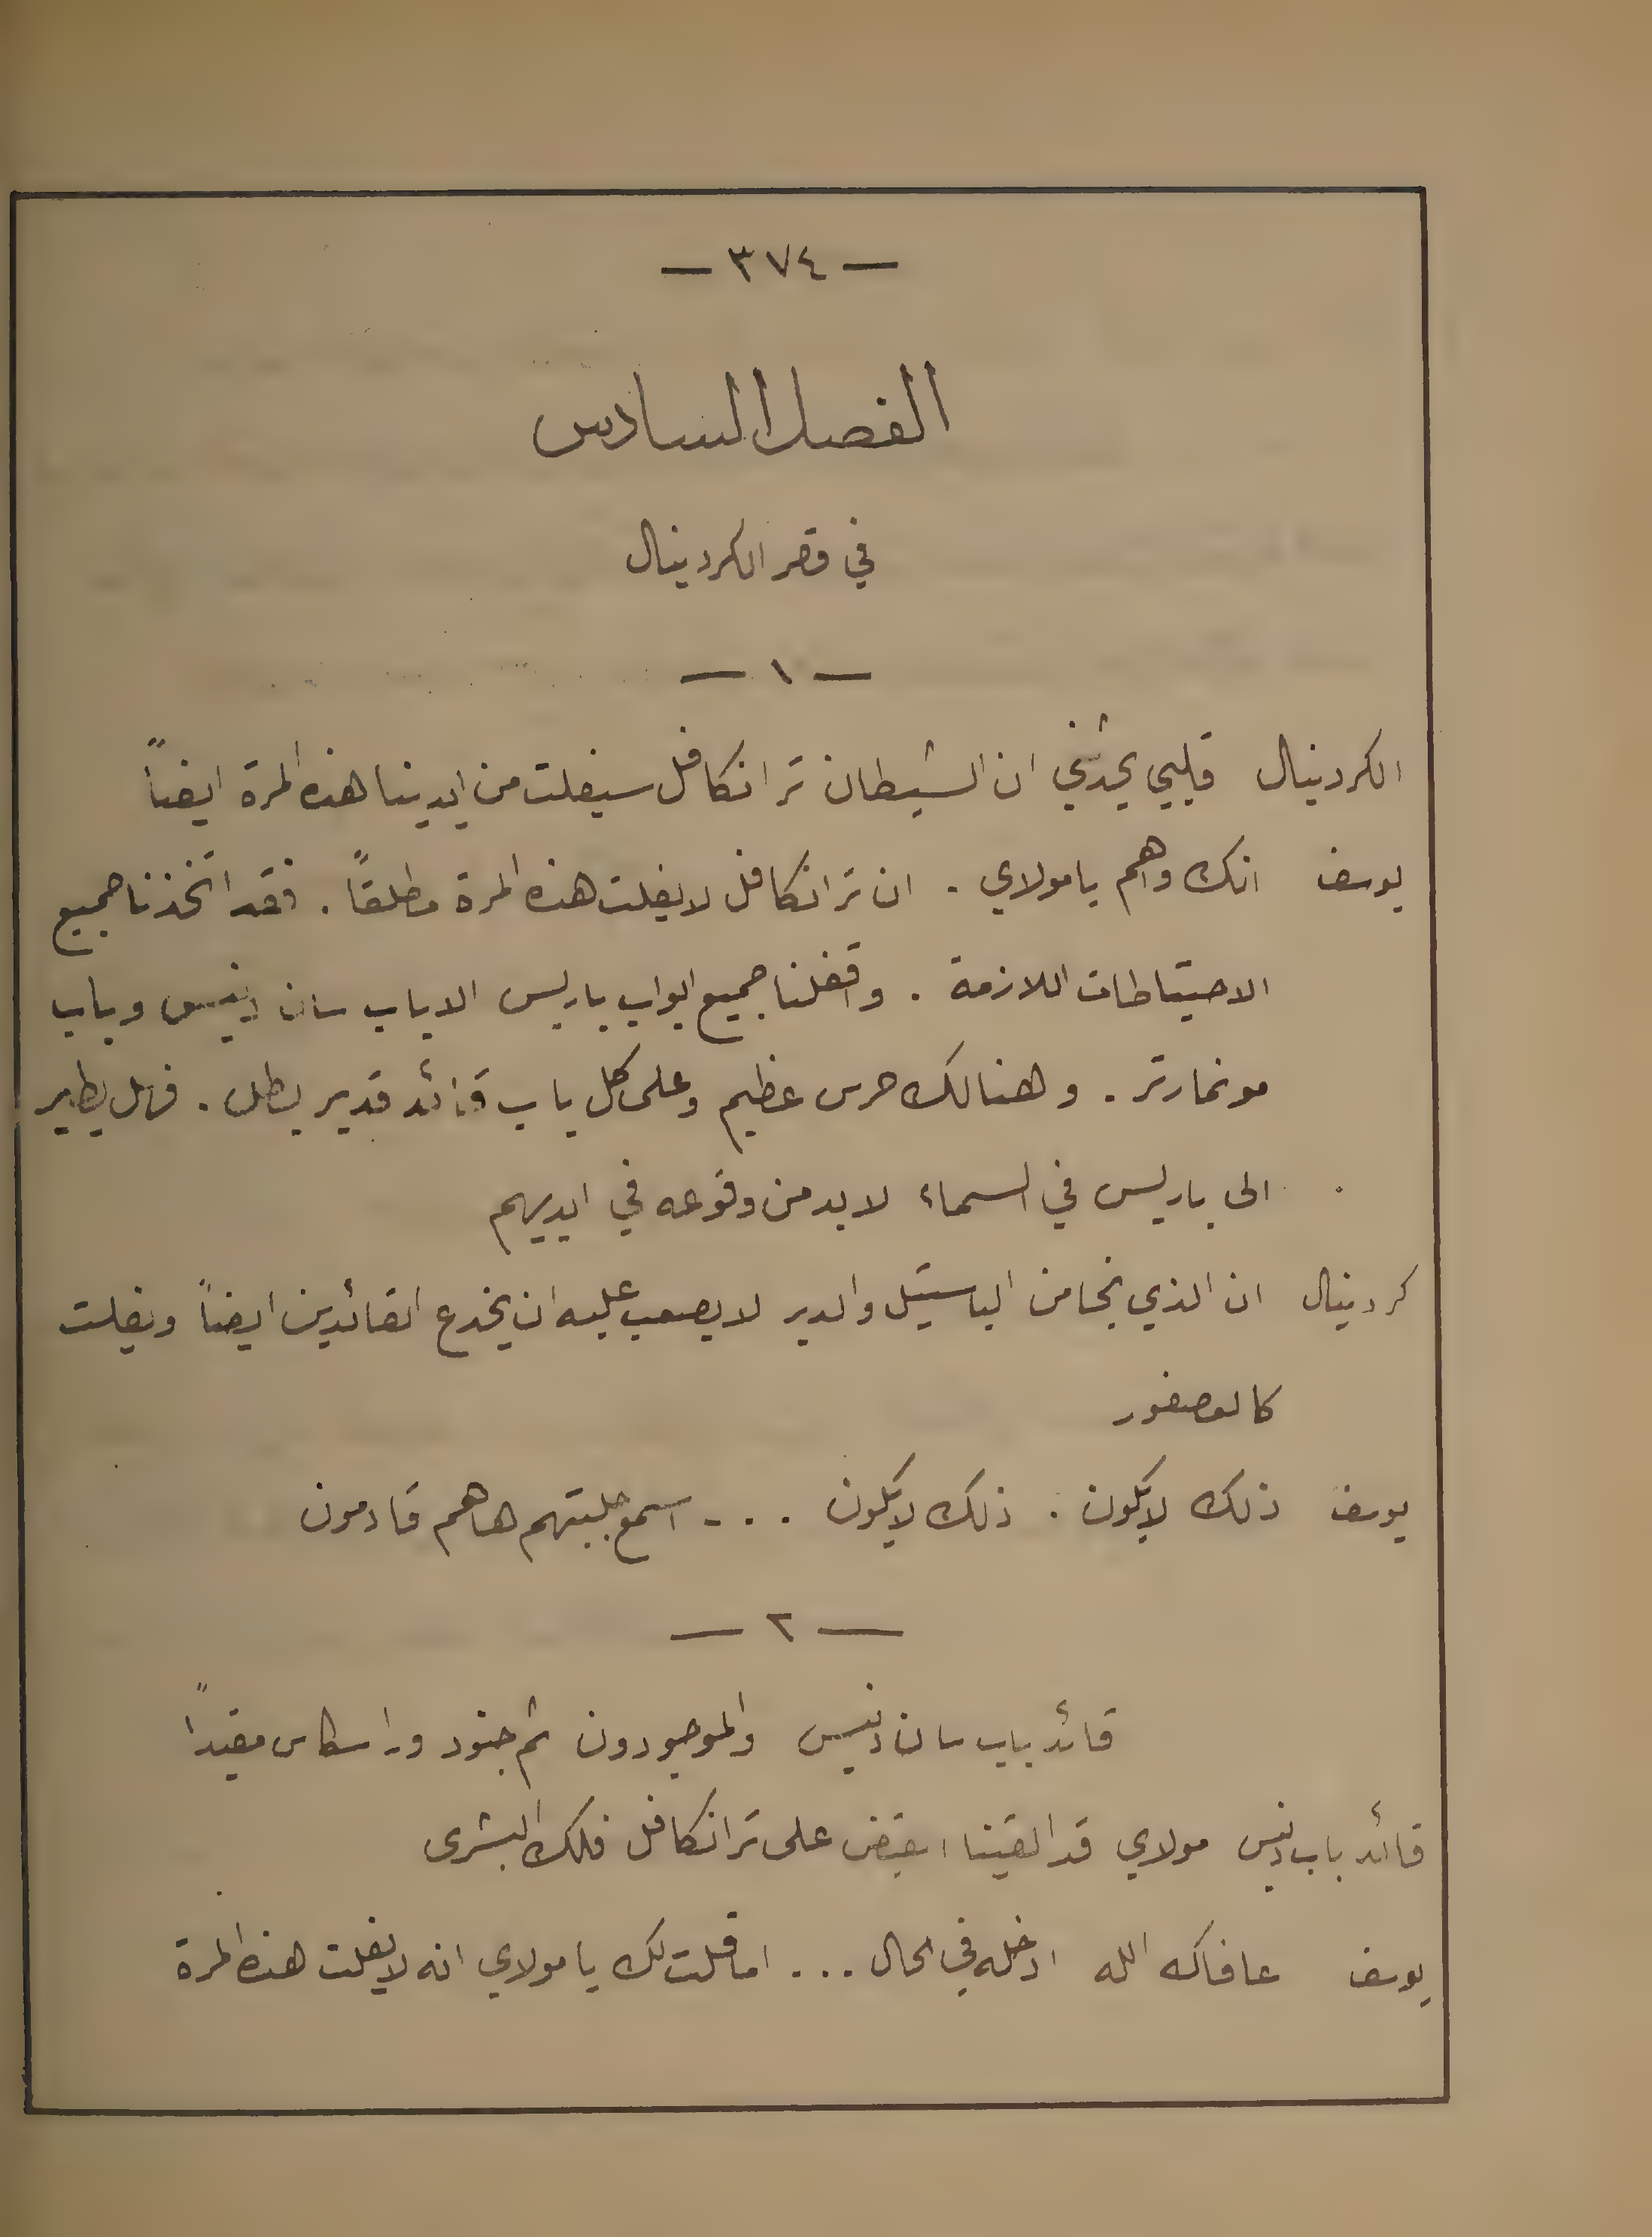 — ٣٧٤ —
الفصل السادس
في قصر الكردينال
— ١ —
الكردينال قلبي يحدّثني ان الشيطان ترانكافل سيفلت من ايدينا هذه المرة ايضاً
يوسف انك واهم يا مولاي . ان ترانكافل لا يفلت هذه المرة مطلقاً . فقد اتخذنا جميع
الاحتياطات اللازمة . واقفلنا جميع ابواب باريس الا باب سان دنيس وباب
مونمارتر . وهنالك حرس عظيم وعلى كل باب قائد قدير بطل . فهل يطير
الى باريس في السماء لا بد من وقوعه في ايديهم
كردينال ان الذي نجا من الباستيل والدير لا يصعب عليه ان يخدع القائدين ايضاً ويفلت
كالعصفور
يوسف ذلك لا يكون . ذلك لا يكون ... اسمع جلبتهم ها هم قادمون
— ٢ —
قائد باب سان دنيس والموجودون ثم جنود وراسكاس مقيداً
قائد باب دنيس مولاي قد القينا القبض على ترانكافل فلك البشرى
يوسف عافاك الله ادخله في الحال ... اما قلت لك يا مولاي انه لا يفلت هذه المرة